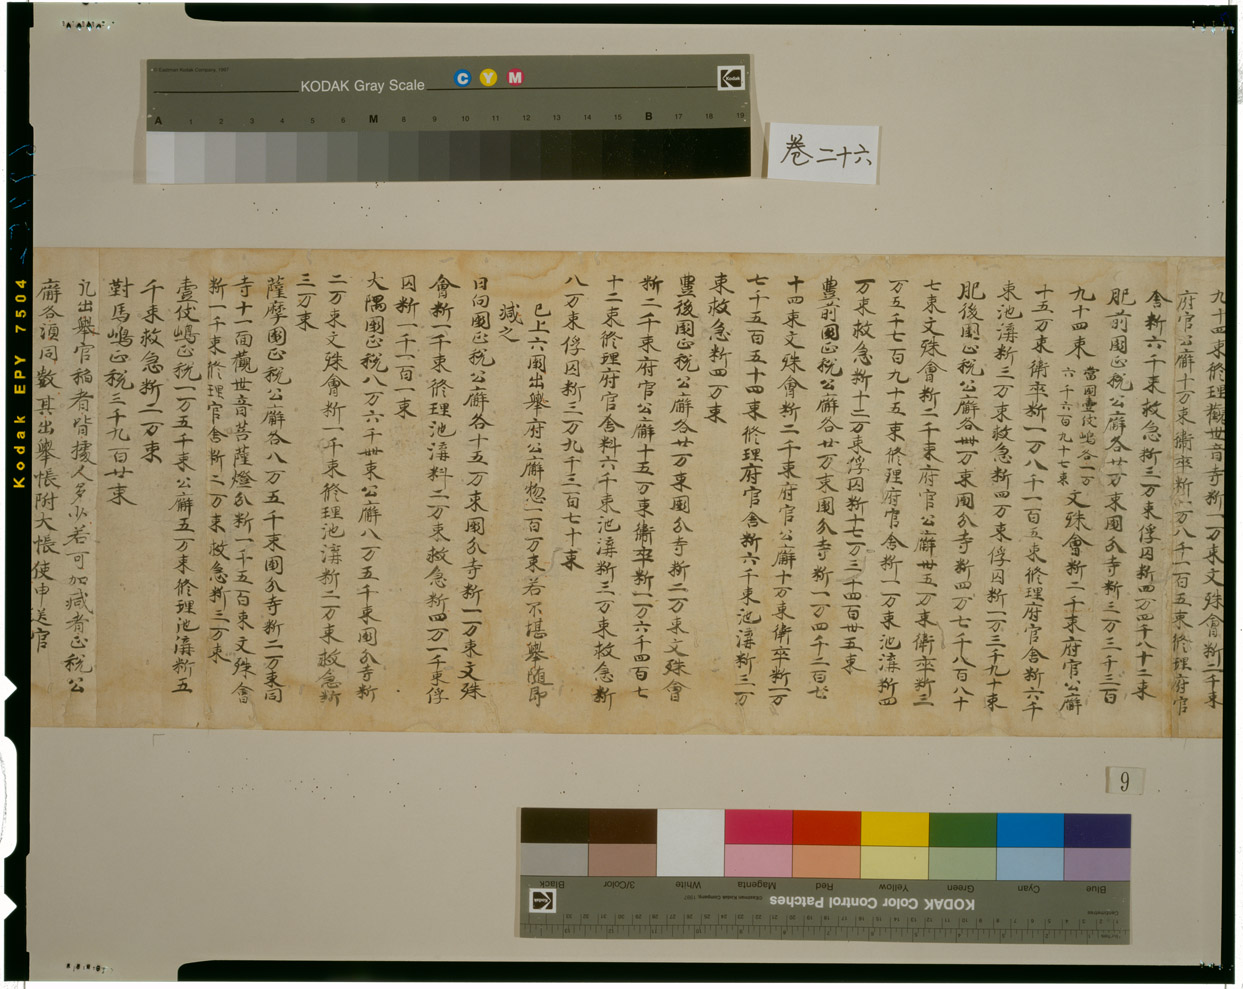 © Eastman Kodak Company, 1997
KODAK Gray Scale
C Y M
Kodak
A 1 2 3 4 5 6 M 8 9 10 11 12 13 14 15 B 17 18 19
巻二十六
九十四束修理觀世音寺断一万束文殊會断二千束
府官公廨十万束衛卒断一万八千一百五束修理府官
舎断六千束救急断三万束俘囚断四万四千八十二束
肥前國正税公廨各廿万束國分寺断三万三千三百
九十四束當國壹伎嶋各一万六千六百九十七束文殊會断二千束府官公廨
十五万束衛卒断一万八千一百五束修理府官舎断六千
束池溝断三万束救急断四万束俘囚断一万三千九十束
肥後國正税公廨各卅万束國分寺断四万七千八百八十
七束文殊會断二千束府官公廨卅五万束衛卒断三
万五千七百九十五束修理府官舎断一万束池溝断四
万束救急断十二万束俘囚断十七万三千四百卅五束
豊前國正税公廨各廿万束國分寺断一万四千二百七
十四束文殊會断二千束府官公廨十万束衛卒断一万
七千五百五十四束修理府官舎断六千束池溝断三万
束救急断四万束
豊後國正税公廨各廿万束國分寺断二万束文殊會
断二千束府官公廨十五万束衛卒断一万六千四百七
十二束修理府官舎料六千束池溝断三万束救急断
八万束俘囚断三万九千三百七十束
已上六國出舉府公廨惣一百万束若不堪舉随即
減之
日向國正税公廨各十五万束國分寺断一万束文殊
會断一千束修理池溝料二万束救急断四万一千束俘
囚断一千一百一束
大隅國正税八万六千卅束公廨八万五千束國分寺断
二万束文殊會断一千束修理池溝断二万束救急断
三万束
薩摩國正税公廨各八万五千束國分寺断二万束同
寺十一面觀世音菩薩燈分断一千五百束文殊會
断一千束修理官舎断二万束救急断三万束
壹伎嶋正税一万五千束公廨五万束修理池溝断五
千束救急断二万束
對馬嶋正税三千九百廿束
凡出舉官稲者皆據人多少若可加減者正税公
廨各須同數其出舉帳附大帳使申送官
9
KODAK Color Control Patches
Blue Cyan Green Yellow Red Magenta White 3/Color Black
Kodak
Kodak EPY 7504